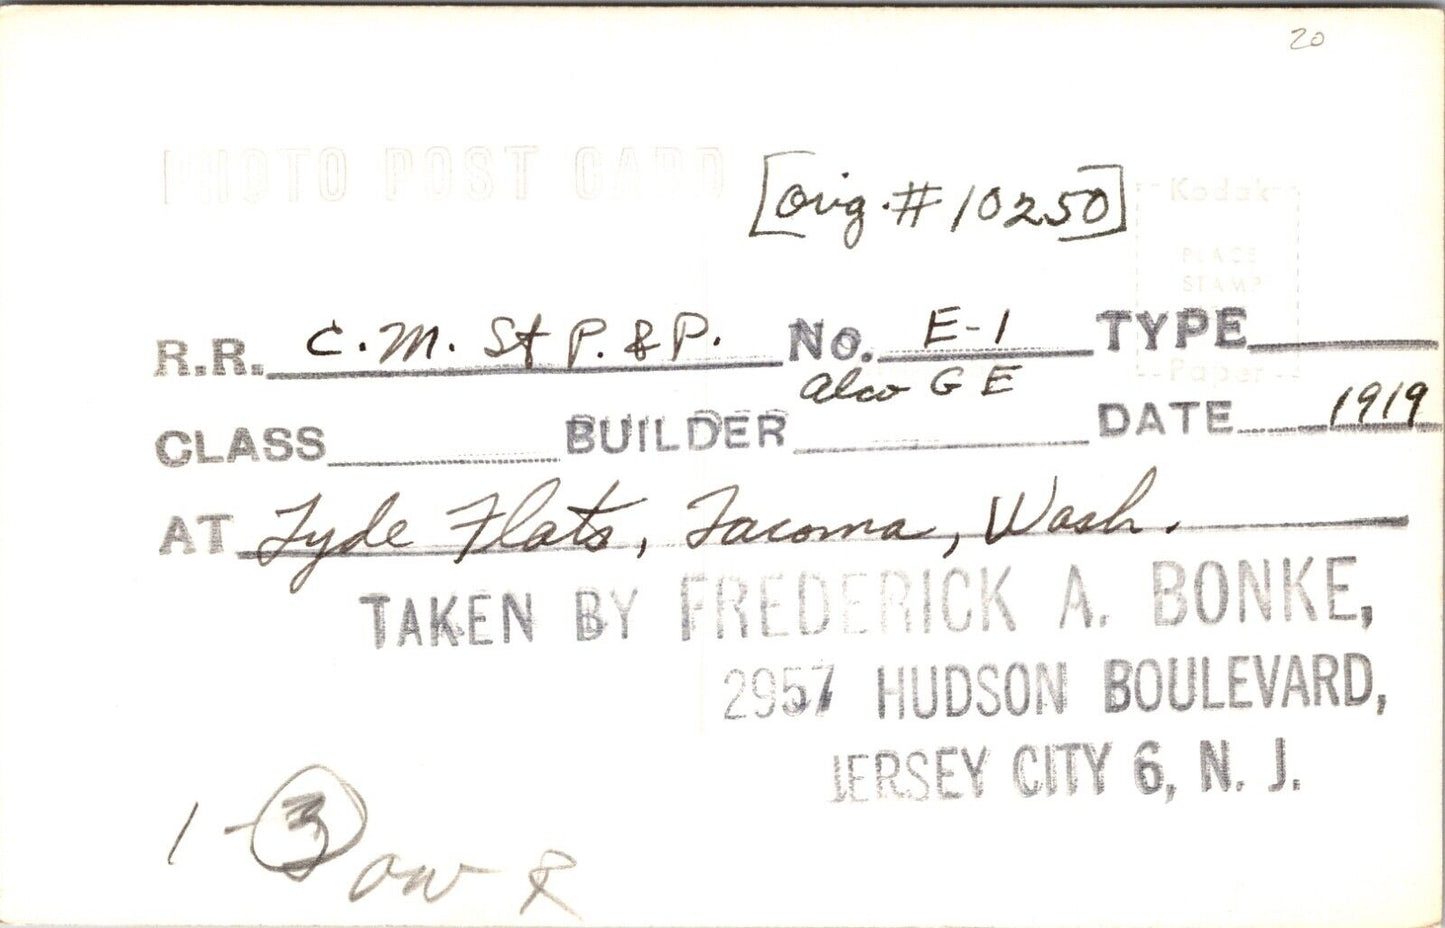 20
PHOTO POST CARD
[Orig. # 10250]
Kodak
PLACE
STAMP
HERE
Paper
R.R. C. M. St P. & P. No. E-1 TYPE
CLASS BUILDER Alco GE DATE 1919
AT Tyde Flats, Tacoma, Wash.
TAKEN BY FREDERICK A. BONKE,
2957 HUDSON BOULEVARD,
JERSEY CITY 6, N. J.
1 - 3